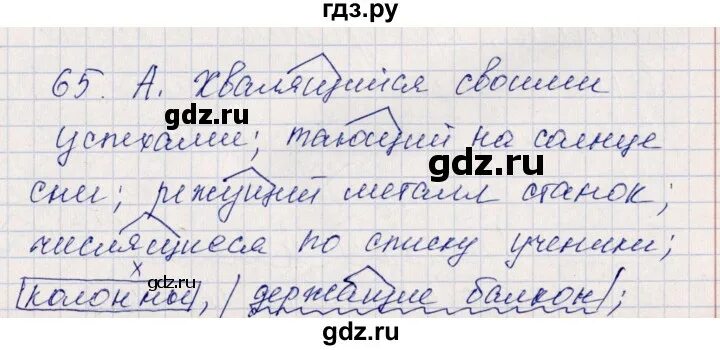 гдз.ру
65. А. Хвалящийся своими
gdz.ru
успехами; тающий на солнце
gdz.ru
снег; режущий металл станок;
числящиеся по списку ученики;
х
gdz.ru
колонны, | держащие балкон |;
gdz.ru